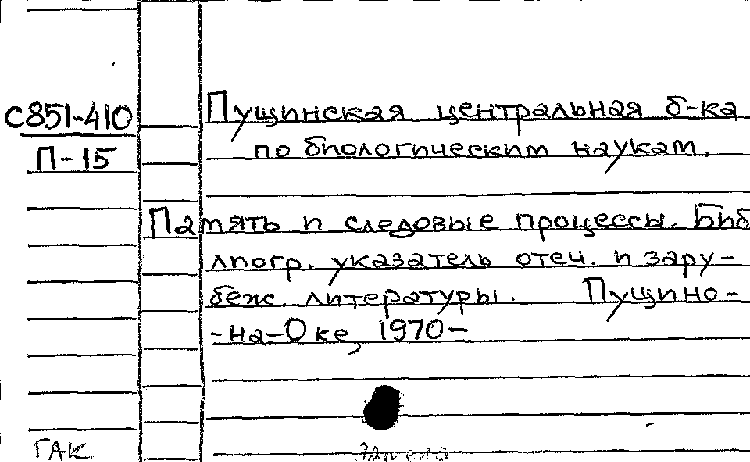 С851-410
П-15
Пущинская центральная б-ка
по биологическим наукам.
Память и следовые процессы. Биб
лиогр. указатель отеч. и зару-
беж. литературы. Пущино-
-на-Оке, 1970-
ГАК